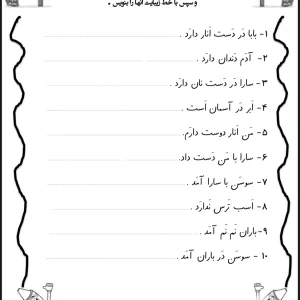 و سپس با خط زیبایت آنها را بنویس .
۱- بابا دَر دَست اَنار دارَد .
۲- آدَم دَندان دارَد .
۳- سارا دَر دَست نان دارَد .
۴- اَبر دَر آسمان اَست .
۵- مَن اَنار دوست دارَم.
۶- سارا با مَن دَست داد.
۷- سوسَن با سارا آمَد .
۸- اَسب تَرس نَدارَد .
۹-باران نَم نَم آمَد .
۱۰- سوسَن دَر باران آمَد .